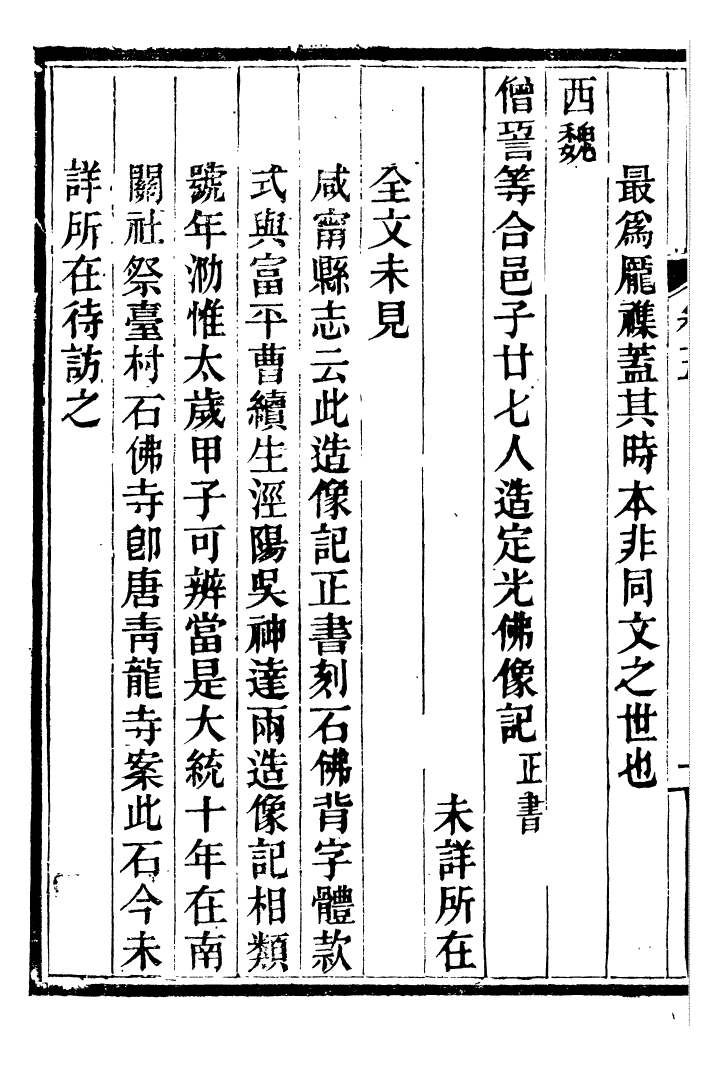 最爲厖襍蓋其時本非同文之世也
西魏
僧詧等合邑子廿七人造定光佛像記正書
未詳所在
全文未見
咸甯縣志云此造像記正書刻石佛背字體款
式與富平曹續生涇陽吳神達兩造像記相類
號年泐惟太歲甲子可辨當是大統十年在南
關社祭臺村石佛寺卽唐靑龍寺案此石今未
詳所在待訪之